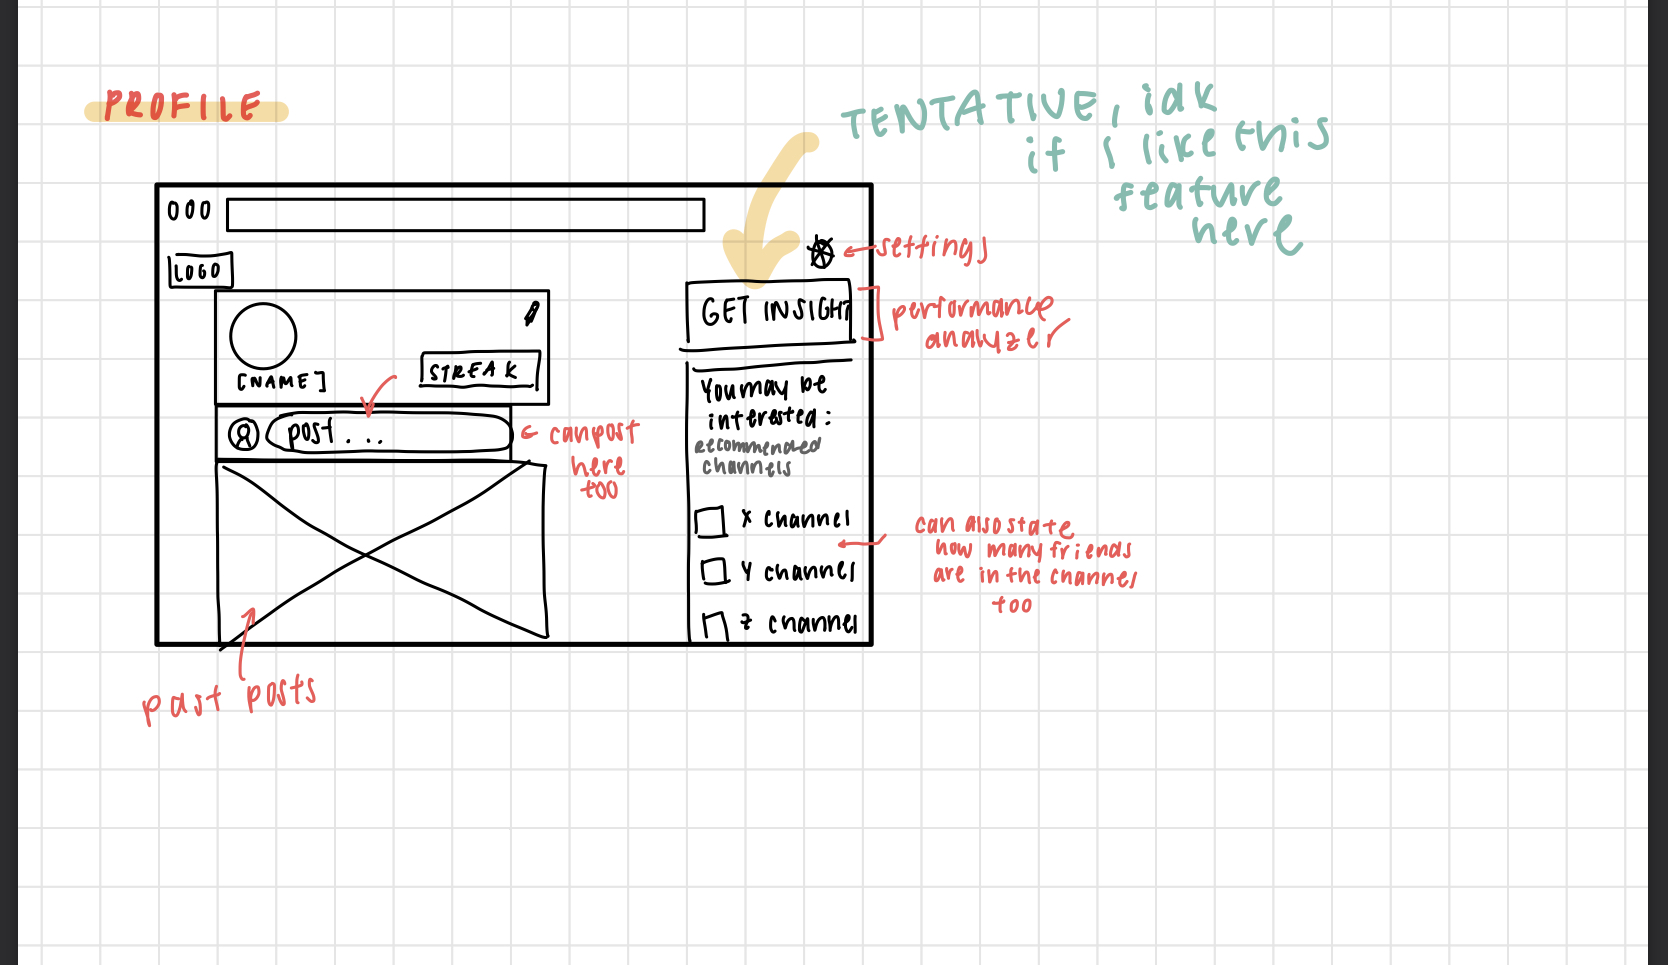 PROFILE
TENTATIVE, idk
if I like this
feature
here
settings
LOGO
GET INSIGHT
performance
analyzer
[NAME]
STREAK
post...
can post
here
too
You may be
interested:
recommended
channels
X channel
Y channel
Z channel
can also state
how many friends
are in the channel
too
past posts